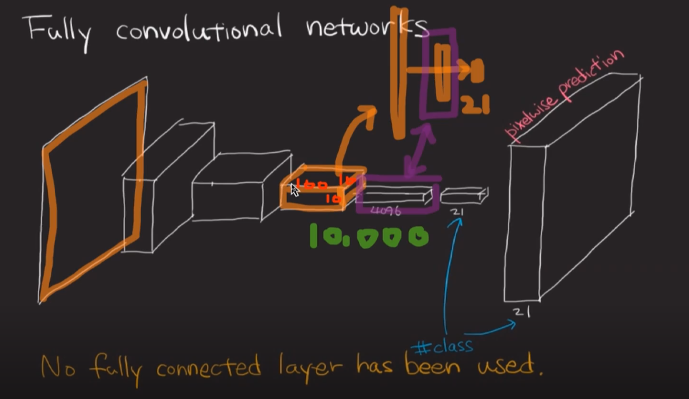 Fully convolutional networks
21
pixelwise prediction
100
10
4096
21
10,000
21
#class
No fully connected layer has been used.